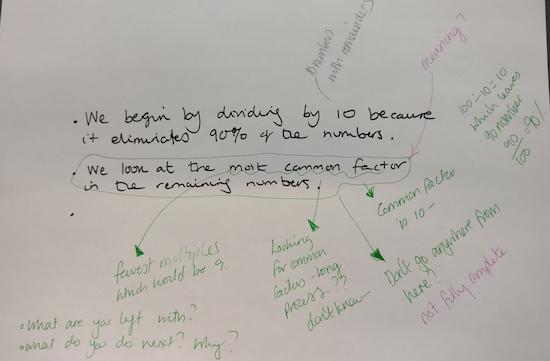 numbers
with remainders
meaning?
100 ÷ 10 = 10
which leaves
90 number
90/100 = 90!
• We begin by dividing by 10 because
it eliminates 90% of the numbers.
• We look at the most common factor
in the remaining numbers.
•
Common factor
is 10 -
fewest multiples
which would be 9.
Looking
for common
factors - long
process??
don't know
Don't go anywhere from
here?
not fully complete
• What are you left with?
• What do you do next? Why?